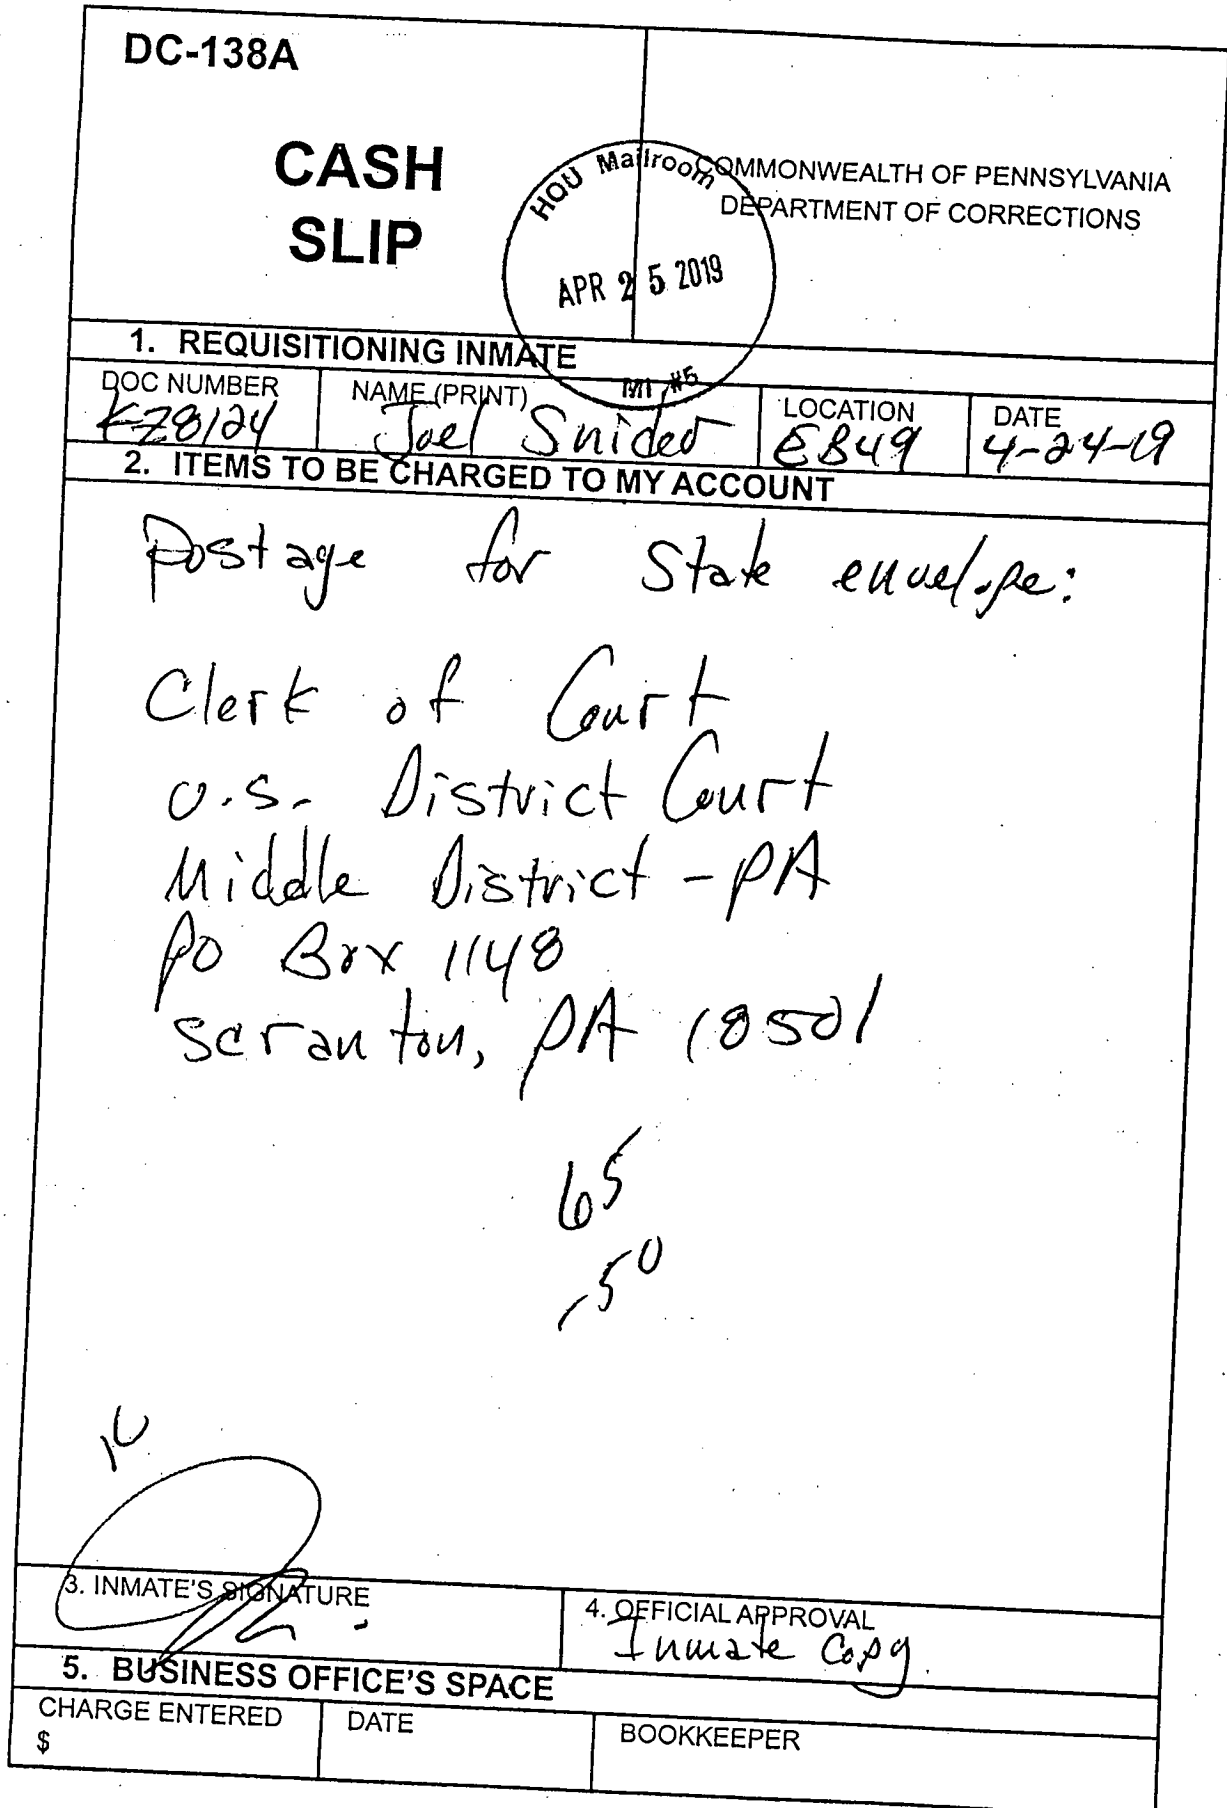 DC-138A
CASH
SLIP
COMMONWEALTH OF PENNSYLVANIA
DEPARTMENT OF CORRECTIONS
HOU Mailroom
APR 25 2019
MI #5
1. REQUISITIONING INMATE
DOC NUMBER NAME (PRINT) LOCATION DATE
KZ8124 Joel Snider EB49 4-24-19
2. ITEMS TO BE CHARGED TO MY ACCOUNT
Postage for State envelope:
Clerk of Court
U.S. District Court
Middle District - PA
PO Box 1148
Scranton, PA 18501
65
.50
3. INMATE'S SIGNATURE
4. OFFICIAL APPROVAL
Inmate Copy.
5. BUSINESS OFFICE'S SPACE
CHARGE ENTERED DATE BOOKKEEPER
$